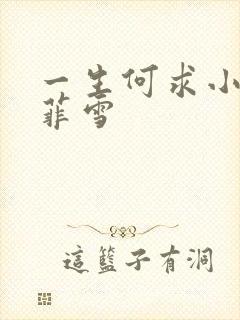 一生何求小
菲雪
這籃子有洞